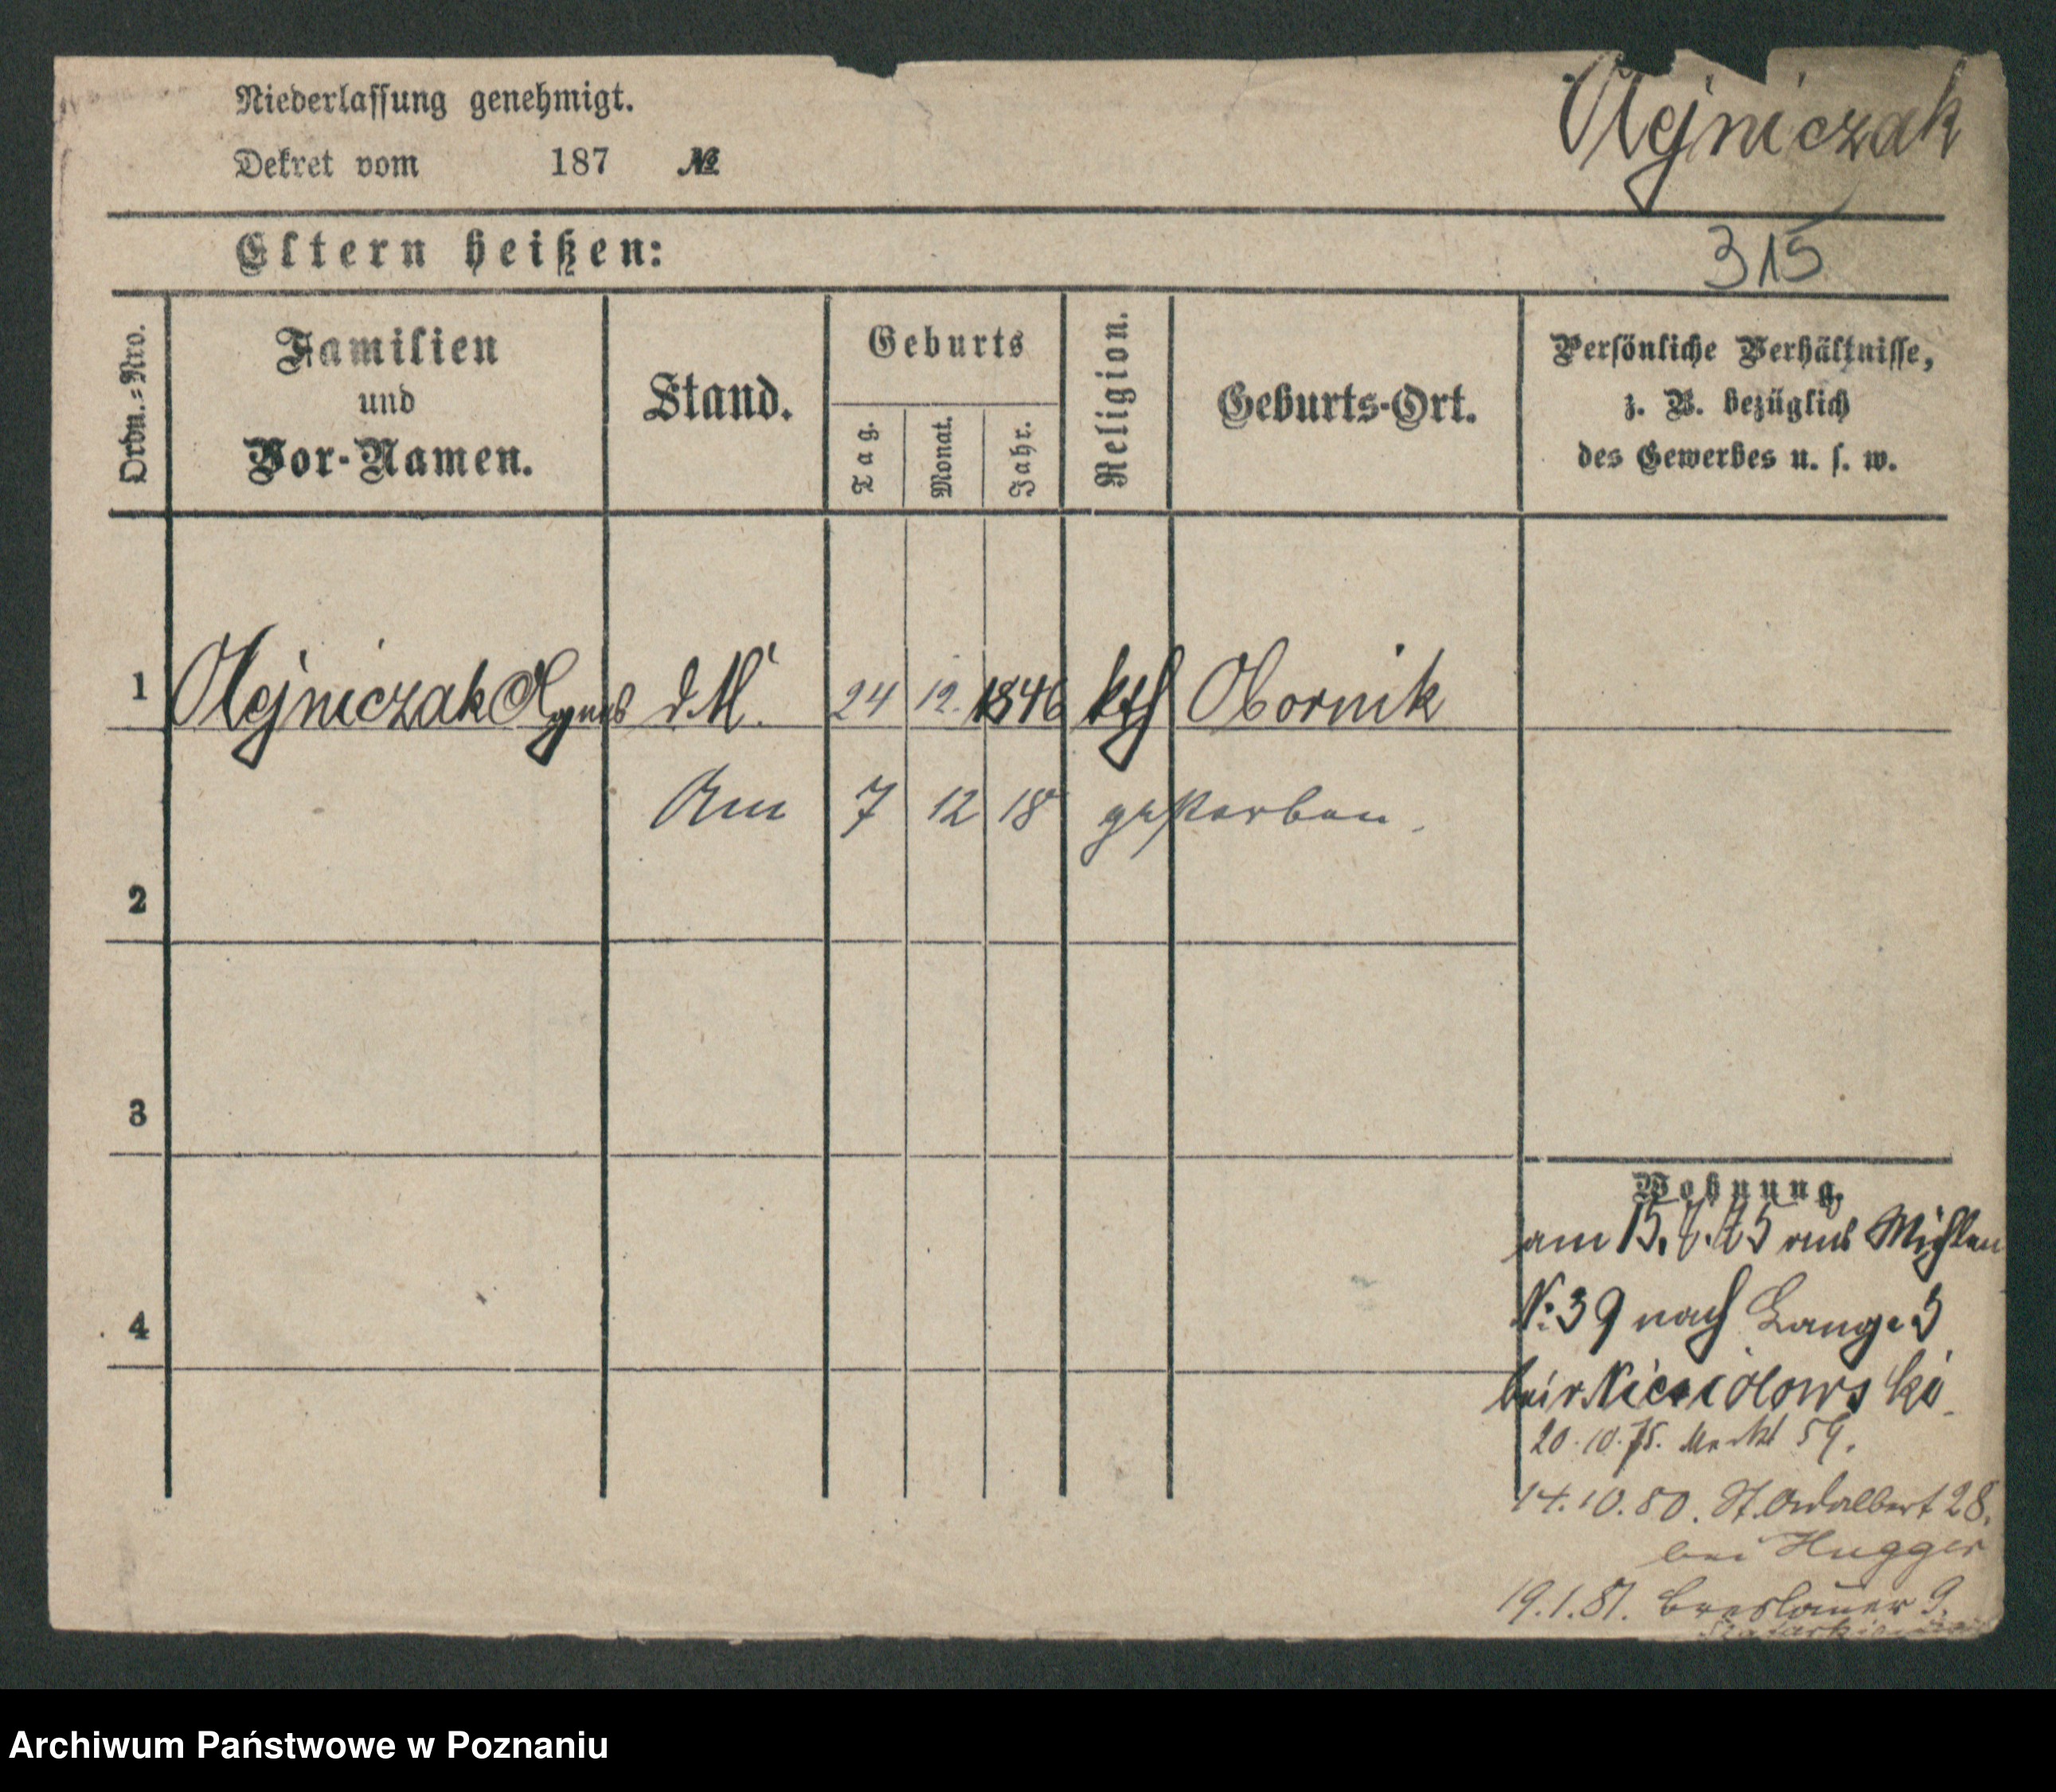 Olejniczak
Niederlassung genehmigt.
Dekret vom 187 №
Eltern heißen:
315
Ordn.=Nro.
Familien
und
Vor-Namen.
Stand.
Geburts
Tag.
Monat.
Jahr.
Religion.
Geburts-Ort.
Persönliche Verhältnisse,
z. B. bezüglich
des Gewerbes u. s. w.
1 Olejniczak Agnes d.M. 24 12. 1846 kth Obornik
Am 7 12 18 gestorben.
2
3
4
Wohnung.
am 15. 75 aus Mühlen
N: 39 nach Lange 3
bei
20.10.75. Markt 59.
14.10.80. St. Adalbert 28.
bei Hugger
19.1.81. Breslauer 9.
Archiwum Państwowe w Poznaniu